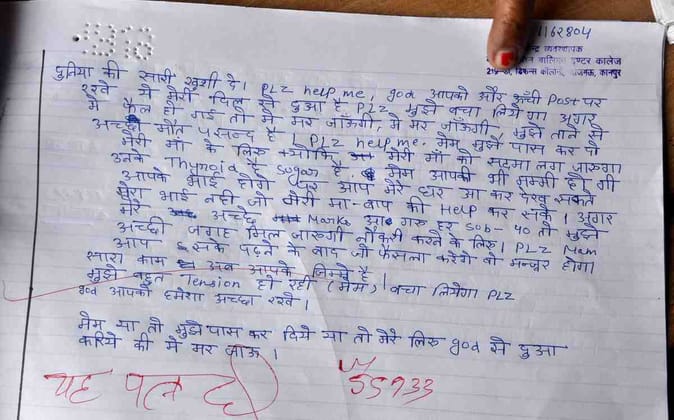 1162804
केन्द्र व्यवस्थापक
बालिका इण्टर कालेज
कानपुर
दुनिया की सारी खुशी दे। PLZ help me, god आपको और ऊँची Post पर
रखे ये मेरी दिल से दुआ है PLZ मुझे बचा लियेगा अगर
मैं फैल हो गई तो मे मर जाऊँगी, मे मर जाऊँगी, मुझे ताने से
अच्छी मौत पसन्द है। PLZ help me. मेम मुझे पास कर दो
मेरी माँ के लिए क्योकि मेरी माँ को सदमा लग जाएगा
उनके Thyroid है sugar है. मेम आपकी भी मम्मी होगी
आपके भाई होगे पर आप मेरे घर आ कर देख सकते
मेरा भाई नही जो मेरी मा-बाप की Help कर सके। अगर
मेरे अच्छे Marks आ गए हर sob - 40 तो मुझे
अच्छी जगह मिल जाएगी नौकरी करने के लिए। PLZ Mam
आप इसके पढ़ने के बाद जो फैसला करेगी वो मन्जूर होगा
सारा काम अब आपके जिम्मे है।
मुझे बहुत Tension हो रही (मेम) बचा लियेगा PLZ
god आपको हमेशा अच्छा रखे।
मेम या तो मुझे पास कर दिये या तो मेरे लिए god से दुआ
करिये की मे मर जाऊ।
यह पत्र